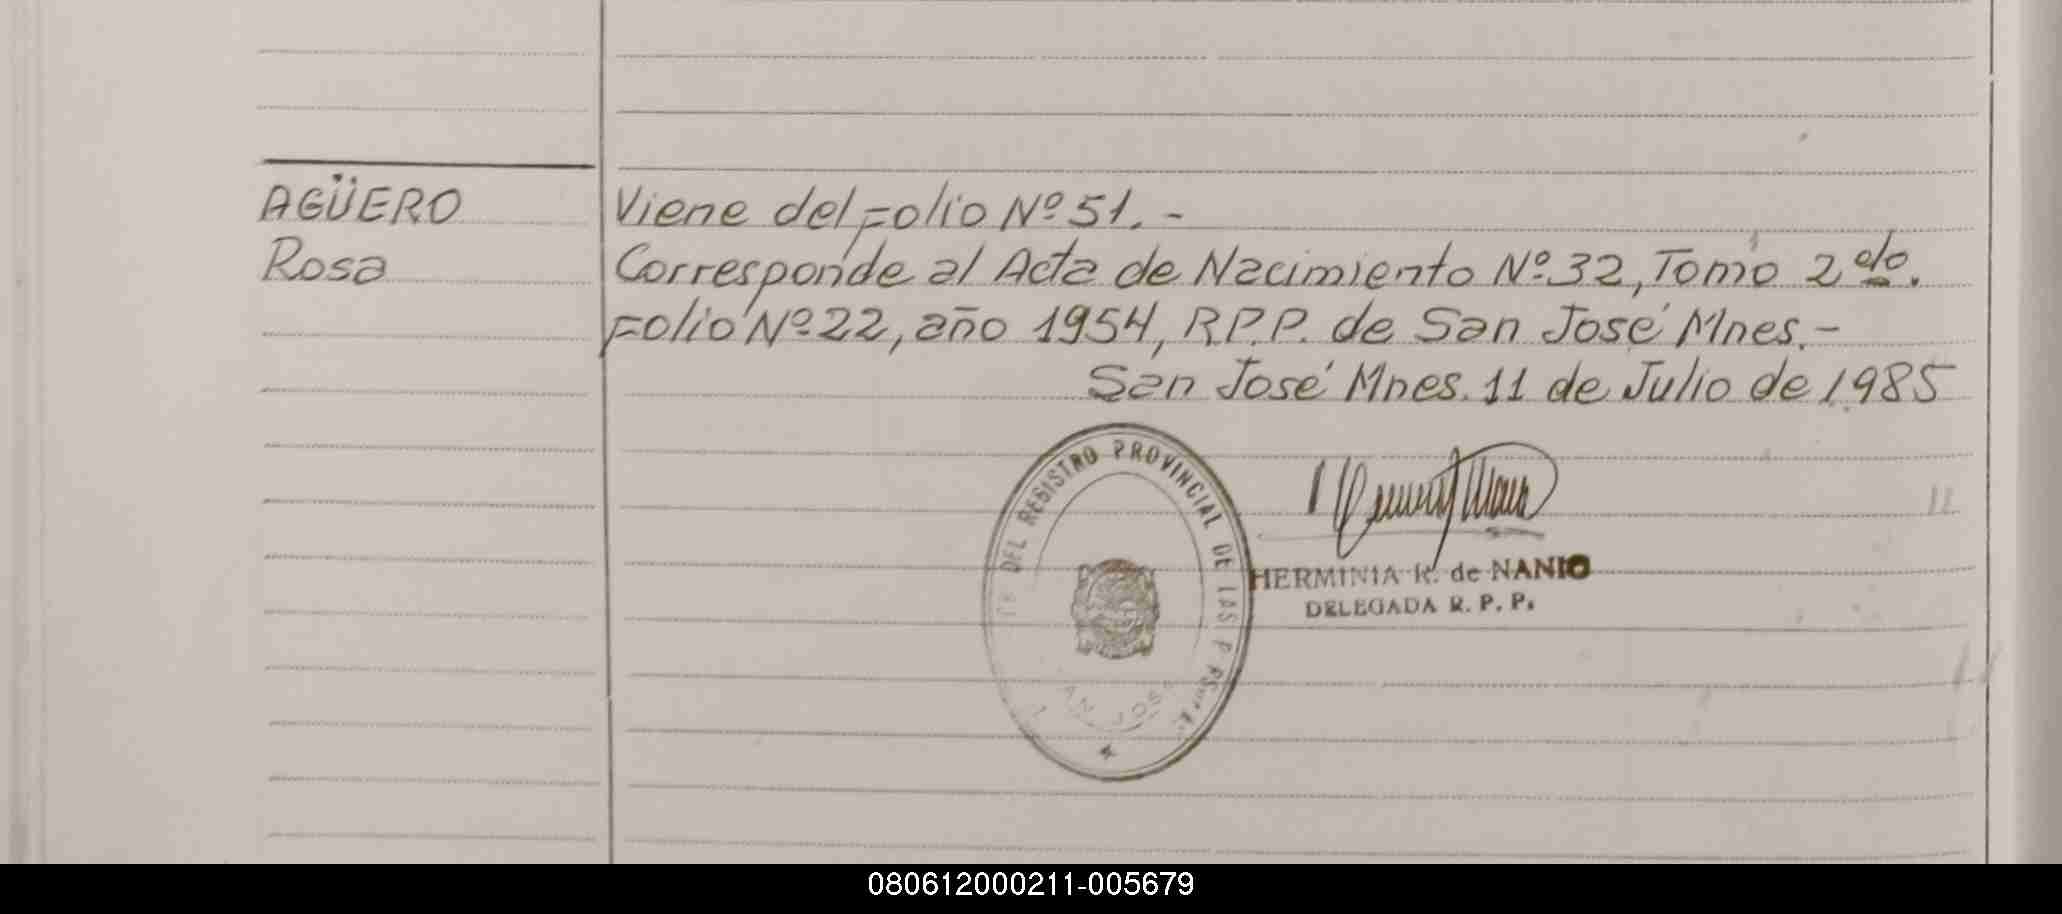 AGÜERO
Rosa
Viene del Folio Nº 51.-
Corresponde al Acta de Nacimiento Nº 32, Tomo 2do.
Folio Nº 22, año 1954, R.P.P. de San José Mnes.-
San José Mnes. 11 de Julio de 1985
DEL REGISTRO PROVINCIAL DE LAS P
HERMINIA R. de NANIO
DELEGADA R. P. P.
080612000211-005679